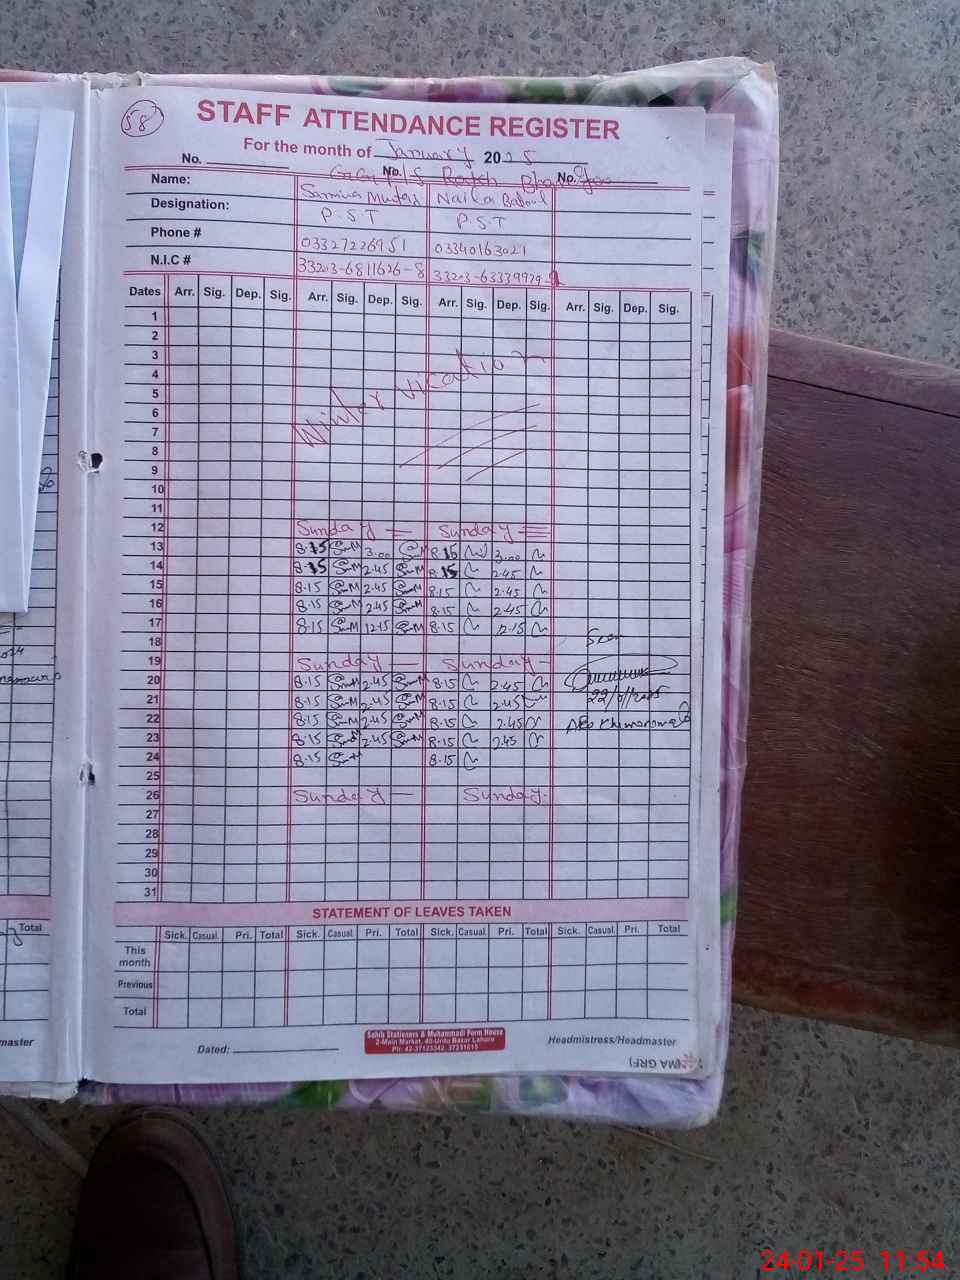 58
STAFF ATTENDANCE REGISTER
For the month of January 2025
No. No. No.
Name: Samina Naila Batool
Designation: P.S.T P.S.T
Phone # 03327226951 03340163021
N.I.C # 33203-6811626-8 33203-6333992
Dates Arr. Sig. Dep. Sig. Arr. Sig. Dep. Sig. Arr. Sig. Dep. Sig. Arr. Sig. Dep. Sig.
1
2
3
4
5
6
7
8
9
10
11
Winter vication
12 Sunday Sunday
13 8.15 3.00 8.15 3.00
14 8.15 2.45 8.15 2.45
15 8.15 2.45 8.15 2.45
16 8.15 2.45 8.15 2.45
17 8.15 12.15 8.15 12.15
18 Seen
19 Sunday Sunday
20 8.15 2.45 8.15 2.45
21 8.15 2.45 8.15 2.45
22 8.15 2.45 8.15 2.45
23 8.15 2.45 8.15 2.45
24 8.15 8.15
25
26 Sunday Sunday
27
28
29
30
31
STATEMENT OF LEAVES TAKEN
Sick. Casual. Pri. Total Sick. Casual. Pri. Total Sick. Casual. Pri. Total Sick. Casual. Pri. Total
This month
Previous
Total
Dated:
Sahib Stationers & Muhammadi Form House
2-Main Market, 40-Urdu Bazar Lahore
Ph: 42-37123342, 37231015
Headmistress/Headmaster
(MA GRF)
Total
master
24-01-25 11:54